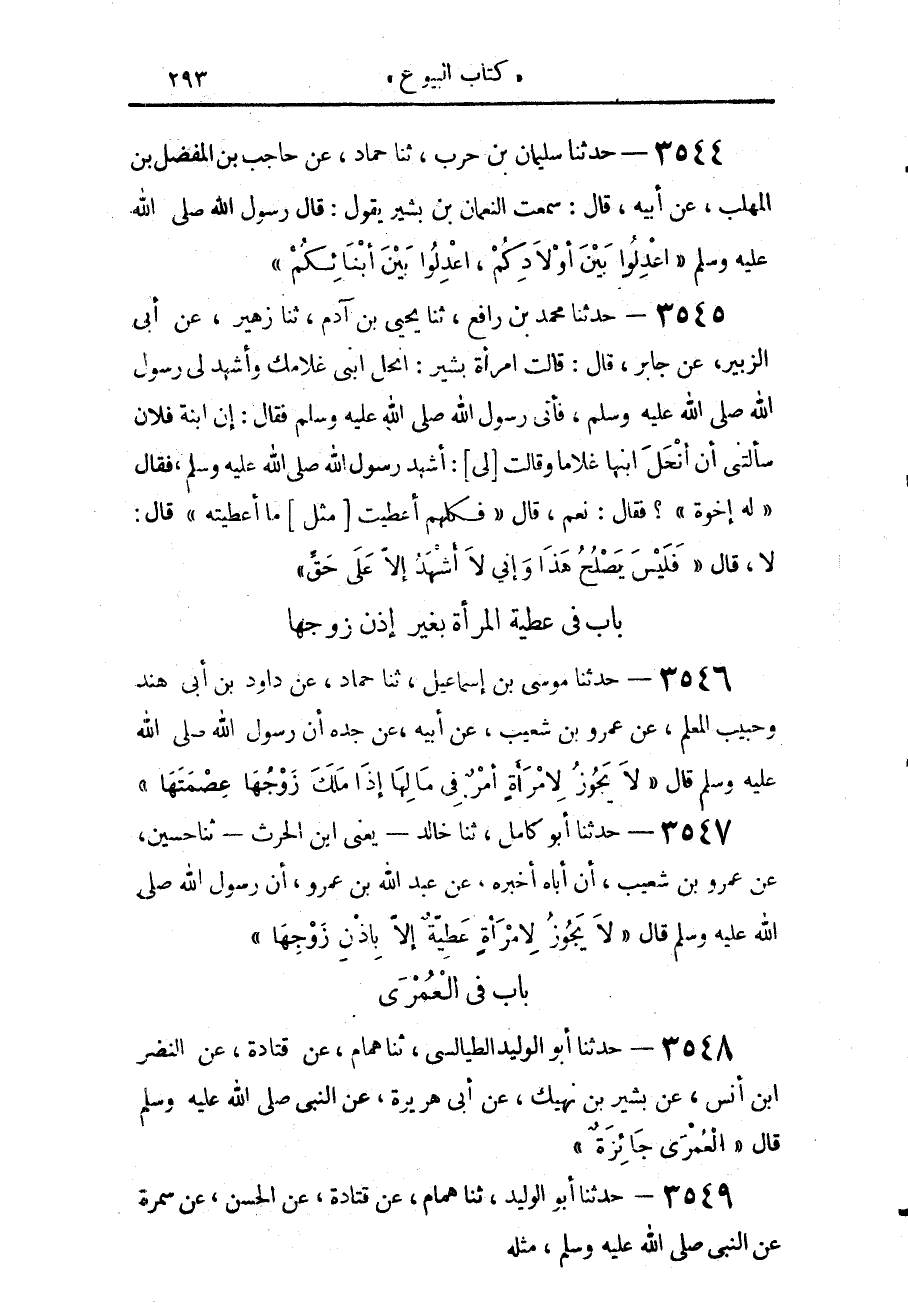 « كتاب البيوع » ٢٩٣
٣٥٤٤ — حدثنا سليمان بن حرب ، ثنا حماد ، عن حاجب بن المفضل بن
المهلب ، عن أبيه ، قال : سمعت النعمان بن بشير يقول : قال رسول الله صلى الله
عليه وسلم « اعْدِلُوا بَيْنَ أَوْلاَدِكُمْ ، اعْدِلُوا بَيْنَ أَبْنَائِكُمْ »
٣٥٤٥ — حدثنا محمد بن رافع ، ثنا يحيى بن آدم ، ثنا زهير ، عن أبى
الزبير، عن جابر ، قال : قالت امرأة بشير : انحل ابنى غلامك وأشهد لى رسول
الله صلى الله عليه وسلم ، فأتى رسول الله صلى الله عليه وسلم فقال : إن ابنة فلان
سألتنى أن أنْحَلَ ابنها غلاما وقالت [لى] : أشهد رسول الله صلى الله عليه وسلم ،فقال
« له إخوة » ؟ فقال : نعم ، قال « فكلهم أعطيت [ مثل ] ما أعطيته » قال :
لا ، قال « فَلَيْسَ يَصْلُحُ هَذَا وَإني لاَ أَشْهَدُ إلاّ عَلَى حَقٍّ»
باب فى عطية المرأة بغير إذن زوجها
٣٥٤٦ — حدثنا موسى بن إسماعيل ، ثنا حماد ، عن داود بن أبى هند
وحبيب المعلم ، عن عمرو بن شعيب ، عن أبيه ،عن جده أن رسول الله صلى الله
عليه وسلم قال « لاَ يَجُوزُ لِامْرَأَةٍ أمْرٌ فِى مَالِهَا إذَا مَلَكَ زَوْجُهَا عِصْمَتَهَا »
٣٥٤٧ — حدثنا أبو كامل ، ثنا خالد — يعنى ابن الحرث — ثنا حسين،
عن عمرو بن شعيب ، أن أباه أخبره ، عن عبد الله بن عمرو ، أن رسول الله صلى
الله عليه وسلم قال « لاَ يَجُوزُ لِامْرَأَةٍ عَطِيّةٌ إلاّ بِإِذْنِ زَوْجِهَا »
باب فى الْعُمْرَى
٣٥٤٨ — حدثنا أبو الوليد الطيالسى ، ثنا همام ، عن قتادة ، عن النضر
ابن أنس ، عن بشير بن نهيك ، عن أبى هريرة ، عن النبى صلى الله عليه وسلم
قال « الْعُمْرَى جَائِزَةٌ »
٣٥٤٩ — حدثنا أبو الوليد ، ثنا همام ، عن قتادة ، عن الحسن ، عن سمرة
عن النبى صلى الله عليه وسلم ، مثله